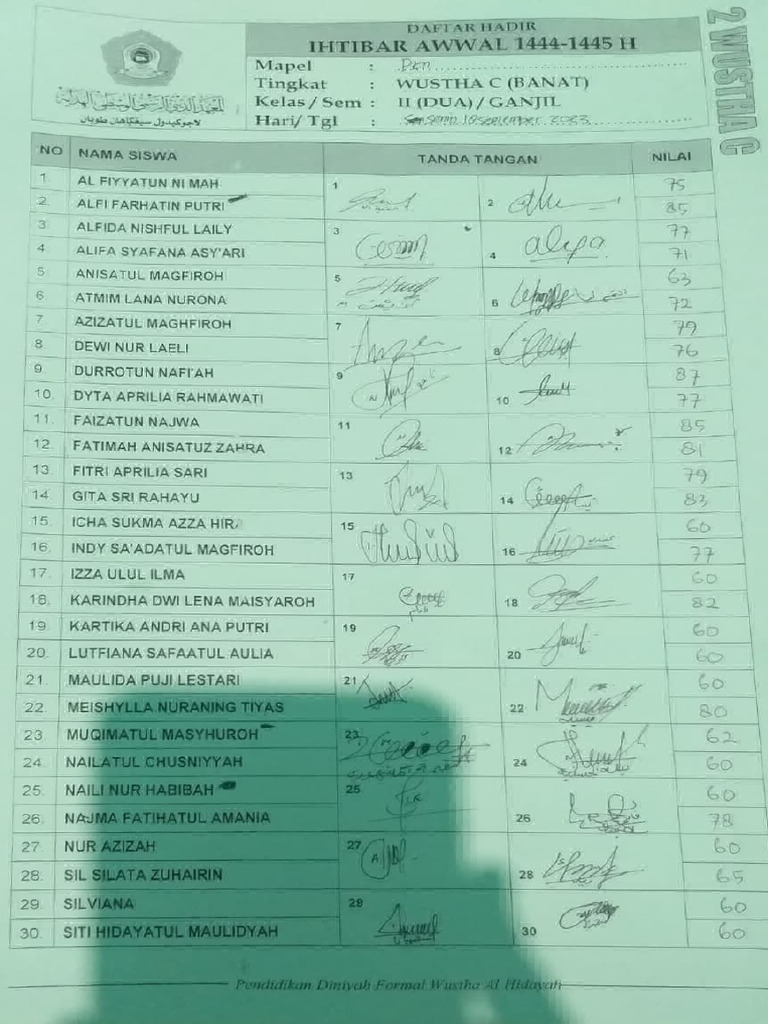 DAFTAR HADIR
IHTIBAR AWWAL 1444-1445 H
Mapel : Pkn
Tingkat : WUSTHA C (BANAT)
Kelas / Sem : II (DUA) / GANJIL
Hari / Tgl : 18 September 2023
2 WUSTHA C
NO NAMA SISWA TANDA TANGAN NILAI
1. AL FIYYATUN NI MAH 1 75
2. ALFI FARHATIN PUTRI 2 85
3 ALFIDA NISHFUL LAILY 3 77
4 ALIFA SYAFANA ASY'ARI 4 71
5 ANISATUL MAGFIROH 5 63
6 ATMIM LANA NURONA 6 72
7. AZIZATUL MAGHFIROH 7 79
8. DEWI NUR LAELI 8 76
9. DURROTUN NAFI'AH 9 87
10. DYTA APRILIA RAHMAWATI 10 77
11. FAIZATUN NAJWA 11 85
12. FATIMAH ANISATUZ ZAHRA 12 81
13. FITRI APRILIA SARI 13 79
14. GITA SRI RAHAYU 14 83
15. ICHA SUKMA AZZA HIRA 15 60
16. INDY SA'ADATUL MAGFIROH 16 77
17. IZZA ULUL ILMA 17 60
18. KARINDHA DWI LENA MAISYAROH 18 82
19 KARTIKA ANDRI ANA PUTRI 19 60
20. LUTFIANA SAFAATUL AULIA 20 60
21 MAULIDA PUJI LESTARI 21 60
22. MEISHYLLA NURANING TIYAS 22 80
23 MUQIMATUL MASYHUROH 23 62
24. NAILATUL CHUSNIYYAH 24 60
25. NAILI NUR HABIBAH 25 60
26. NAJMA FATIHATUL AMANIA 26 78
27. NUR AZIZAH 27 60
28. SIL SILATA ZUHAIRIN 28 65
29. SILVIANA 29 60
30. SITI HIDAYATUL MAULIDYAH 30 60
Pendidikan Diniyah Formal Wustha Al Hidayah